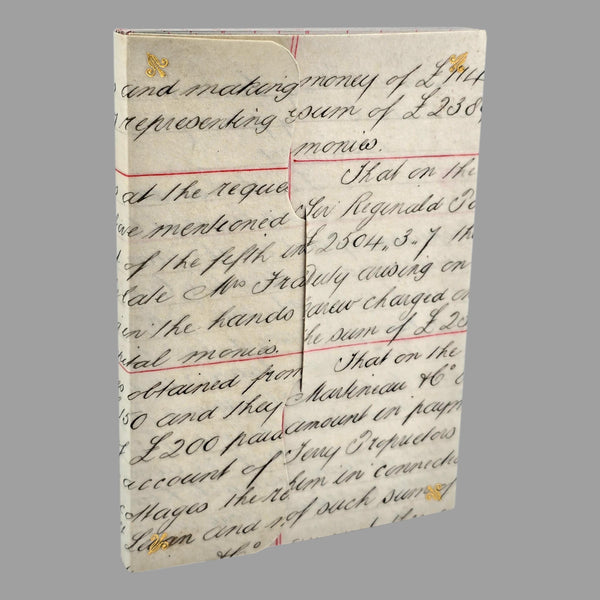 and making money of £
representing sum of £ 238
monies.
That on the
at the reque
mentioned Sir Reginald
of the fifth in £ 2504,, 3,, 7 the
late Mrs Fra Duty arising on
in the hands charged on
the sum of £
monies.
That on the
obtained from Martineau & Co
50 and they amount in paym
£200 paid Terry Proprietors
account of him in connectio
Stages the re of such sum of
and